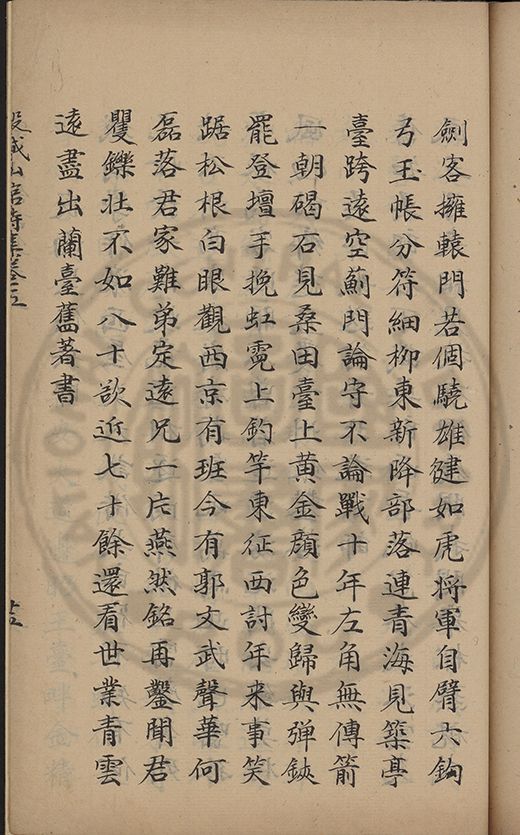 劍客擁轅門若個驍雄健如虎將軍自臂六鈎
弓玉帳分符細柳東新降部落連青海見築亭
臺跨遠空薊門論守不論戰十年左角無傳箭
一朝碣石見桑田臺上黄金顔色變歸與弹鋏
罷登壇手挽虹霓上釣竿東征西討年来事笑
踞松根白眼觀西京有班今有郭文武聲華何
磊落君家難弟定遠兄一片燕然銘再鑿聞君
矍鑠壯不如八十欲近七十餘還看世業青雲
遠盡出蘭臺舊著書
穀城山館詩集卷之五